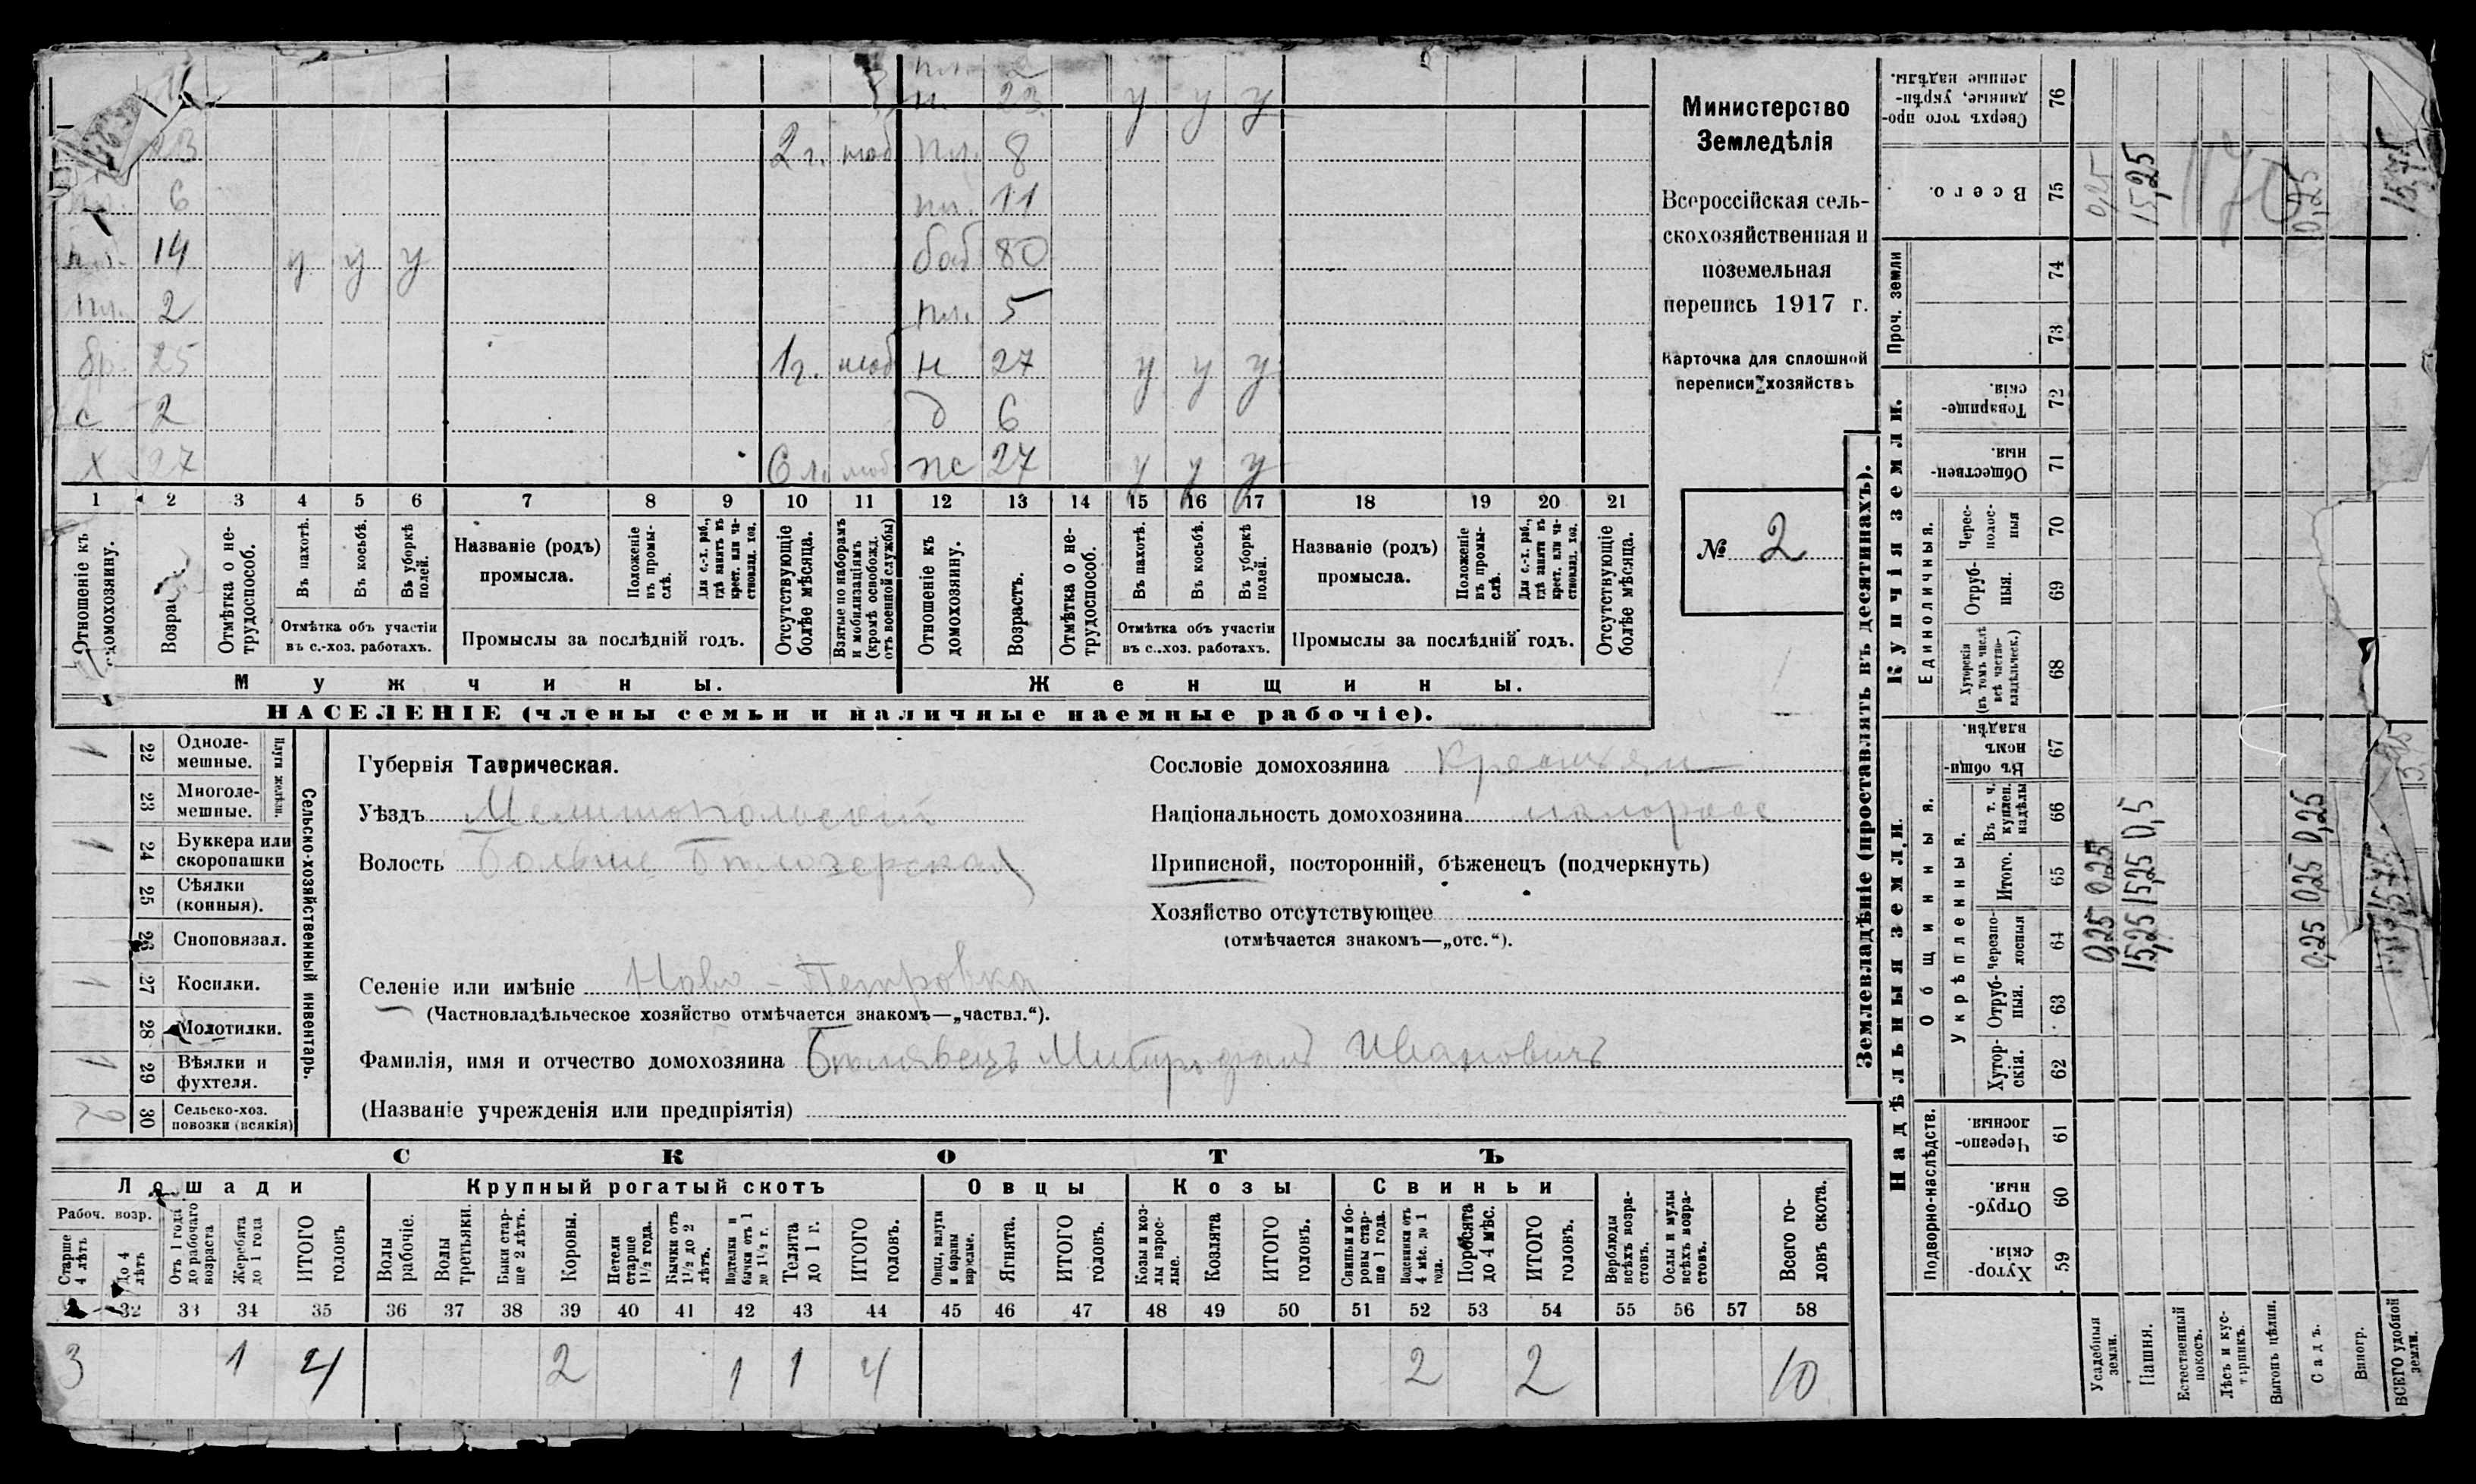 пл. 2
н. 23 у у у
23 2 г. моб пл. 8
пл. 6 пл. 11
пл. 14 у у у баб 80
пл. 2 пл. 5
бр. 25 1 г. моб н 27 у у у
с 2 д 6
х 27 6 м. моб жс 27 у у у
1 2 3 4 5 6 7 8 9 10 11 12 13 14 15 16 17 18 19 20 21
Отношеніе къ домохозяину.
Возра
Отмѣтка о не-трудоспособ.
Въ пахотѣ.
Въ косьбѣ.
Въ уборкѣ полей.
Отмѣтка объ участіи
въ с.-хоз. работахъ.
Названіе (родъ)
промысла.
Положеніе въ промы-слѣ.
Для с.-х. раб., гдѣ занятъ въ крест. или ча-стновлад. хоз.
Промыслы за послѣдній годъ.
Отсутствующіе болѣе мѣсяца.
Взятые по наборамъ и мобилизаціямъ (кромѣ освобожд. отъ военной службы)
Отношеніе къ домохозяину.
Возрастъ.
Отмѣтка о не-трудоспособ.
Въ пахотѣ.
Въ косьбѣ.
Въ уборкѣ полей.
Отмѣтка объ участіи
въ с.-хоз. работахъ.
Названіе (родъ)
промысла.
Положеніе въ промы-слѣ.
Для с.-х. раб., гдѣ занята въ крест. или ча-стновлад. хоз.
Промыслы за послѣдній годъ.
Отсутствующіе болѣе мѣсяца.
Мужчины. Женщины.
НАСЕЛЕНІЕ (члены семьи и наличные наемные рабочіе).
Министерство
Земледѣлія
Всероссійская сель-
скохозяйственная и
поземельная
перепись 1917 г.
Карточка для сплошной
переписи хозяйствъ
№ 2
Сельско-хозяйственный инвентарь.
Плуги желѣзн.
1 22 Однолемешные.
23 Многолемешные.
1 24 Буккера или скоропашки
25 Сѣялки (конныя).
26 Сноповязал.
1 27 Косилки.
28 Молотилки.
1 29 Вѣялки и фухтеля.
2 30 Сельско-хоз. повозки (всякія)
Губернія Таврическая.
Уѣздъ Мелитопольскій
Волость Больше Бѣлозерская
Селеніе или имѣніе Ново-Петровка
(Частновладѣльческое хозяйство отмѣчается знакомъ—„частвл.“).
Фамилія, имя и отчество домохозяина Бѣлявецъ Митрофанъ Ивановичъ
(Названіе учрежденія или предпріятія)
Сословіе домохозяина крестьян
Національность домохозяина малоросс
Приписной, посторонній, бѣженецъ (подчеркнуть)
Хозяйство отсутствующее
(отмѣчается знакомъ—„отс.“).
СКОТЪ
Лошади Крупный рогатый скотъ Овцы Козы Свиньи
Рабоч. возр.
Старше 4 лѣтъ
До 4 лѣтъ
Отъ 1 года до рабочаго возраста
Жеребята до 1 года
ИТОГО головъ
Волы рабочіе.
Волы третьяки.
Быки стар-ше 2 лѣтъ.
Коровы.
Нетели старше 1½ года.
Бычки отъ 1½ до 2 лѣтъ.
Подтелки и бычки отъ 1 до 1½ г.
Телята до 1 г.
ИТОГО головъ.
Овцы, валухи и бараны взрослые.
Ягнята.
ИТОГО головъ.
Козы и коз-лы взрос-лые.
Козлята
ИТОГО головъ.
Свиньи и бо-ровы стар-ше 1 года.
Подсвинки отъ 4 мѣс. до 1 года.
Поросята до 4 мѣс.
ИТОГО головъ.
Верблюды всѣхъ возра-стовъ.
Ослы и мулы всѣхъ возра-стовъ.
Всего го-ловъ скота.
32 33 34 35 36 37 38 39 40 41 42 43 44 45 46 47 48 49 50 51 52 53 54 55 56 57 58
3 1 4 2 1 1 4 2 2 10
Землевладѣніе (проставлять въ десятинахъ).
Надѣльныя земли.
Купчія земли.
Проч. земли
Подворно-наслѣдств.
Общинныя.
Укрѣпленныя.
Единоличныя.
Хутор-скія. 59
Отруб-ныя. 60
Черезпо-лосныя. 61
Хутор-скія. 62
Отруб-ныя. 63
Черезпо-лосныя 64
Итого. 65
Въ т. ч. куплен. надѣлы 66
Въ общи-номъ владѣн. 67
Хуторскія (въ томъ числѣ всѣ частно-владѣльческ.) 68
Отруб-ныя. 69
Черес-полос-ныя 70
Обществен-ныя. 71
Товарище-скія. 72
73
74
Всего. 75
Сверхъ того про-данные, укрѣп-ленные надѣлы. 76
Усадебныя земли. 0,25 0,25 0,25
Пашня. 15,25 15,25 0,5 15,25
Естественный покосъ.
Лѣсъ и кус-тарникъ.
Выгонъ цѣлин.
Садъ. 0,25 0,25 0,25 0,25
Виногр.
ВСЕГО удобной земли. 15,75 15,75